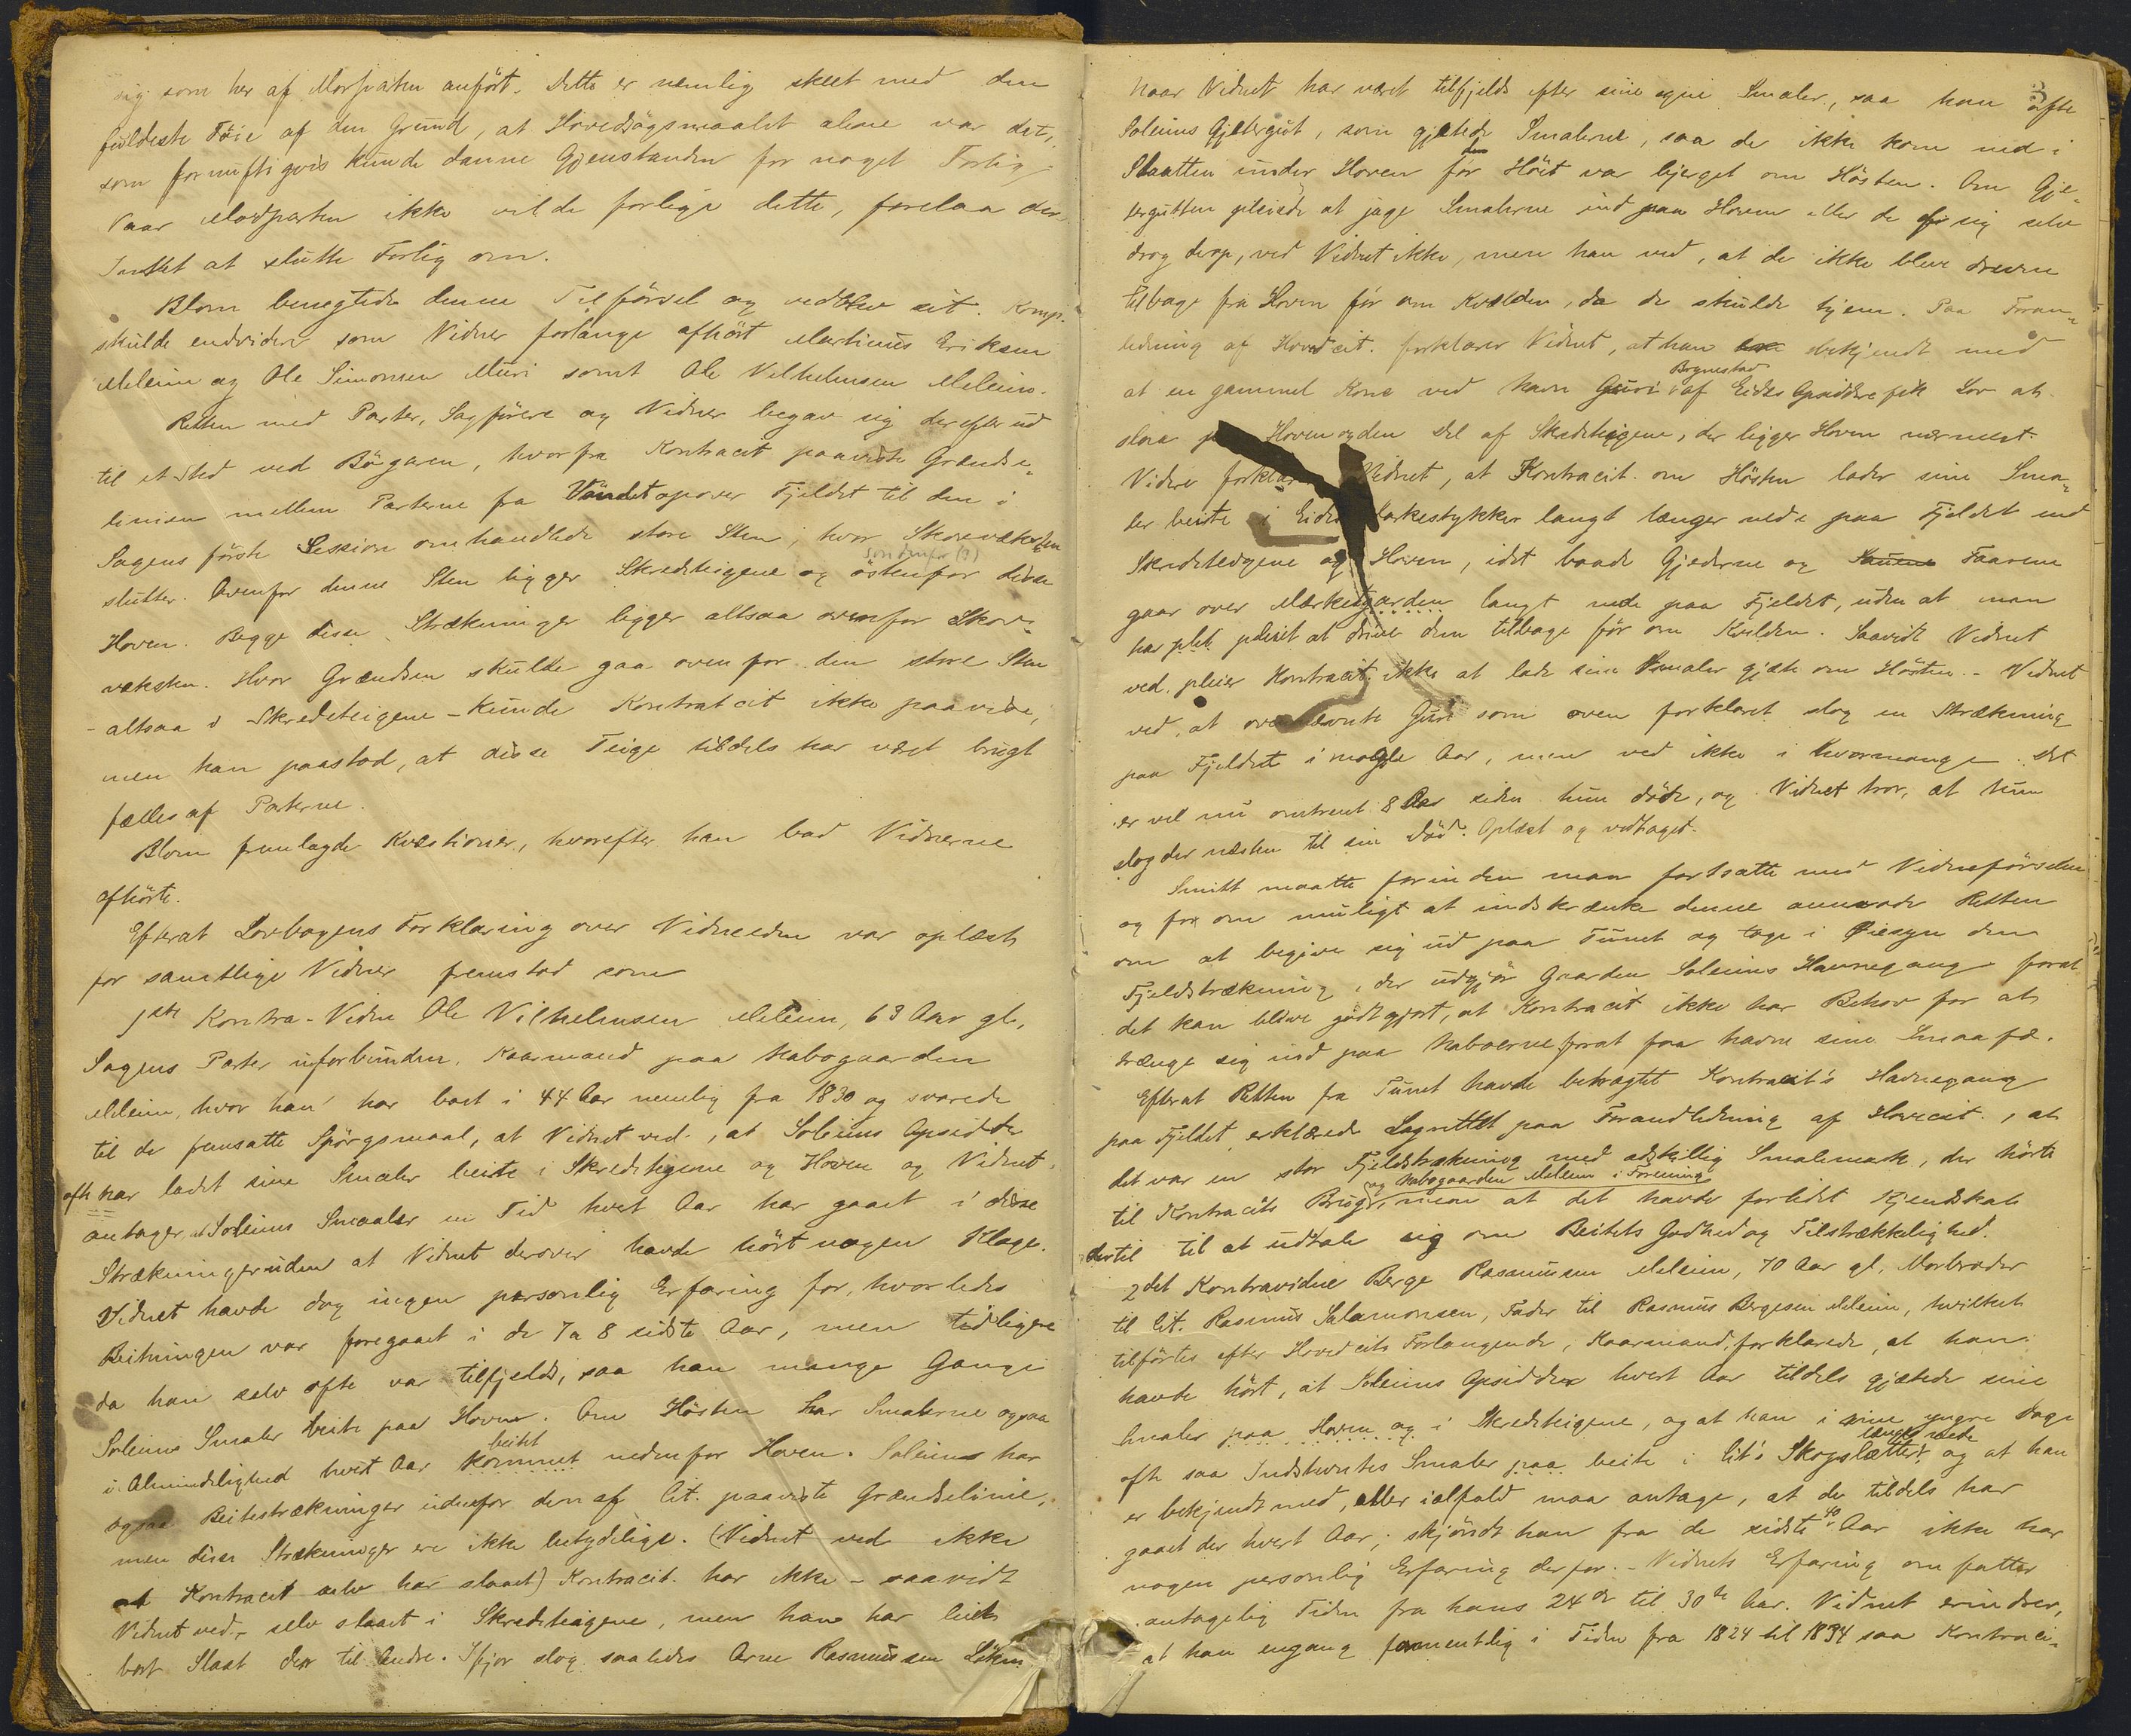 sig som her af Morparten anført. Dette er nemlig skeet med den
fuldeste Føie af den Grund, at Hovedsøgsmaalet alene var det,
som fornuftigvis kunde danne Gjenstanden for noget Forlig,
Naar Modparten ikke vilde forlige dette, forelaa der
Intet at slutte Forlig om.
Blom benegtede denne Tilførsel og vedblev sit. Komp.
skulde endvidere som Vidner forlange afhørt Martinus Eriksen
Meleim og Ole Simonsen Muri samt Ole Vilhelmsen Meleim.
Retten med Parter, Sagførere og Vidner begav sig derefter ud
til et Sted ved Bøgaren, hvorfra Kontracit paaviste Grændse-
linien mellem Parterne fra Vandet opover Fjeldet til den i
Sagens første Session omhandlede store Sten, hvor Skovvæksten
slutter. Ovenfor denne Sten ligger Skredteigene og østenfor disse
søndenfor (?)
Hoven. Begge disse Strækninger ligger altsaa ovenfor Skov-
væksten. Hvor Grændsen skulde gaa ovenfor den store Sten
- altsaa i Skredteigene - kunde Kontratcit ikke paavise,
men han paastod, at disse Teige tildels har været brugt
fælles af Parterne.
Blom fremlagde Kvæstioner, hvorefter han bad Vidnerne
afhørte.
Efterat Lovbogens Forklaring over Vidneeden var oplæst
for samtlige Vidner fremstod som
1ste Kontra-Vidne Ole Vilhelmsen Meleim, 63 Aar gl.,
Sagens Parter uforbunden. Kaarmand paa Nabogaarden
Meleim, hvor han har boet i 44 Aar nemlig fra 1830 og svarede
til de fremsatte Spørgsmaal, at Vidnet ved, at Soleims Opsidder
ofte har ladet sine Smaler beite i Skredteigene og Hoven og Vidnet
antager, at Soleims Smaler en Tid hvert Aar har gaaet i disse
Strækninger uden at Vidnet derover havde hørt nogen Klage.
Vidnet havde dog ingen personlig Erfaring for, hvorledes
Beitningen var foregaaet i de 7 a 8 sidste Aar, men tidligere
da han selv ofte var tilfjelds, saa han mange Gange
Soleims Smaler beite paa Hoven. Om Høsten har Smalerne ogsaa
i Almindelighed hvert Aar kommet nedenfor Hoven. Soleims har
beitet
ogsaa Beitestrækninger udenfor den af Cit. paaviste Grændselinie,
men disse Strækninger ere ikke betydelige. (Vidnet ved ikke
at Kontracit selv har slaaet) Kontracit. har ikke - saavidt
Vidnet ved - selv slaaet i Skredteigene, men han har leiet
bort Slaat der til Andre. Ifjor slog saaledes Arne Rasmussen
Naar Vidnet har været tilfjelds efter sine egne Smaler, saa han ofte
Soleims Gjetergut, som gjætede Smalerne, saa de ikke kom ned i
Slaatten under Hoven før Høiet var bjerget om Høsten. Om Gje-
tergutten pleiede at jage Smalerne ind paa Hoven eller de af sig selv
drog derop, ved Vidnet ikke, men han ved, at de ikke bleve drevne
tilbage fra Hoven før om Kvælden, da de skulde hjem. Paa Foran-
ledning af Hovedcit. forklarer Vidnet, at han er bekjendt med
at en gammel Kone ved Navn Guri af Eides Opsiddere fik Lov at
Brynestad
slaa paa Hoven og den Del af Skredteigene, der ligger Hoven nærmest.
Videre forklarer Vidnet, at Kontracit. om Høsten lader sine Sma-
ler beite i Eides Markestykker langt længer nede paa Fjeldet end
Skredteigene og Hoven, idet baade Gjederne og Faarene
gaar over Mærkesgarden langt nede paa Fjeldet, uden at man
har pleiet at drive dem tilbage før om Kvelden. Saavidt Vidnet
ved, pleier Kontracit. ikke at lade sine Smaler gjæte om Høsten. - Vidnet
ved, at ovennævnte Guri som oven forklaret slog en Strækning
paa Fjeldet i nogle Aar, men ved ikke i hvormange. Det
er vel nu omtrent 8 Aar siden hun døde, og Vidnet tror, at hun
slog der næsten til sin Død. Oplæst og vedtaget.
Smitt maatte forinden man fortsatte med Vidneførselen
og for om muligt at indskrænke denne anmode Retten
om at begive sig ud paa Tunet og tage i Øiesyn den
Fjeldstrækning, der udgjør Gaarden Soleims Havnegang forat
det kan blive godtgjort, at Kontracit ikke har Behov for at
trænge sig ind paa Naboerne forat faa havne sine Smaafæ.
Efterat Retten fra Tunet havde betragtet Kontracit's Havnegang
paa Fjeldet, erklærede Lagrettet paa Foranledning af Hovcit., at
det var en stor Fjeldstrækning med adskillig Smalemark, der hørte
til Kontracits Brug, men at det havde forlidet Kjendskab
og Nabogaarden Meleim i Forening
dertil til at udtale sig om Beitets Godhed og Tilstrækkelighed.
2det Kontravidne Berge Rasmussen Meleim, 70 Aar gl, Morbroder
til Cit. Rasmus Salamonsen, Fader til Rasmus Bergesen Meleim, hvilket
tilførtes efter Hovedcits Forlangende, Kaarmand, forklarede, at han
havde hørt, at Soleims Opsiddere hvert Aar tildels gjætede sine
Smaler paa Hoven og i Skredteigene, og at han i sine yngre Dage
ofte saa Indstevntes Smaler paa beite i Cit's Skogslætter og at han
længer nede
er bekjendt med, eller ialfald maa antage, at de tildels har
gaaet der hvert Aar; skjøndt han fra de sidste 40 Aar ikke har
nogen personlig Erfaring derfor. - Vidnets Erfaring omfatter
antagelig Tiden fra hans 24de til 30te Aar. Vidnet erindrer,
at han engang formentlig i Tiden fra 1824 til 1834 saa Kontraci-